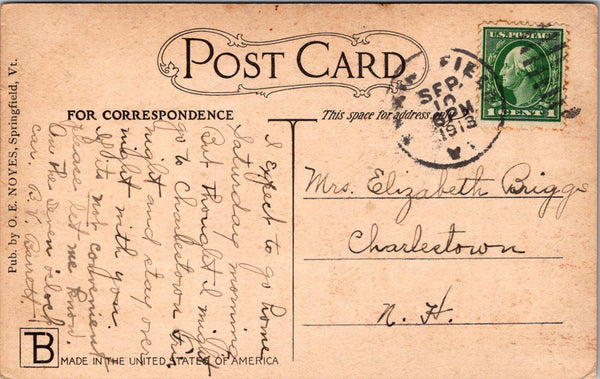 POST CARD
U.S. POSTAGE
1 CENT 1
FIE
SEP.
10
PM
1913
FOR CORRESPONDENCE
This space for address only
I expect to go home
Saturday morning
But thought I might
go to Charlestown Fri.
night and stay over
night with you.
If its not convenient
please let me know.
On the seven oclock
car. B. V. Barrett
Mrs. Elizabeth Briggs
Charlestown
N. H.
Pub. by O. E. NOYES, Springfield, Vt.
TB
MADE IN THE UNITED STATES OF AMERICA